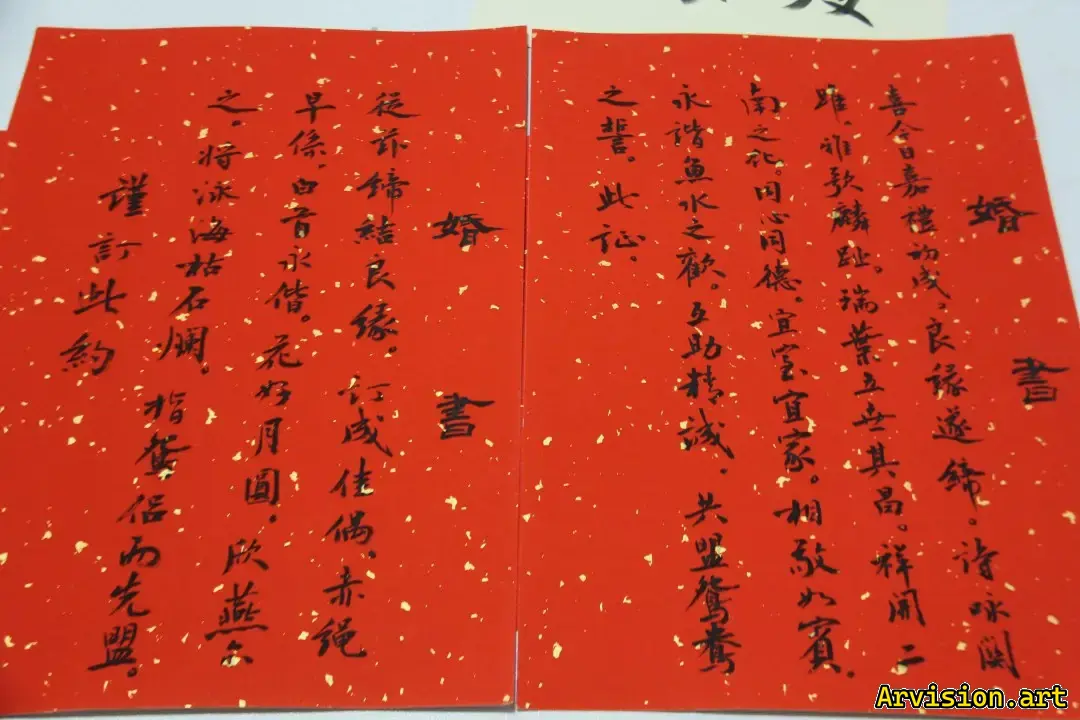 婚書
喜今日嘉禮初成，良緣遂締。詩咏関
雎，雅歌麟趾。瑞葉五世其昌。祥開二
南之化。同心同德。宜室宜家。相敬如賓。
永諧魚水之歡。互助精誠。共盟鴛鴦
之誓。此证。
婚書
從茲締結良緣。訂成佳偶、赤繩
早係。白首永偕。花好月圓。欣燕尒
之。将泳海枯石爛。指鴛侣而先盟。
謹訂此約
Arvision.art